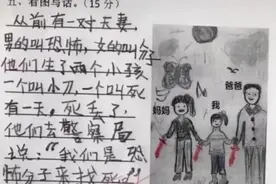 五、看图写话。(15分)
从前有一对夫妻,
男的叫恐怖,女的叫分子
他们生了两个小孩
一个叫小刀,一个叫死
有一天,死丢了,
他们去警察局
说:“我们是恐
怖分子来找死。”
妈妈
我
爸爸